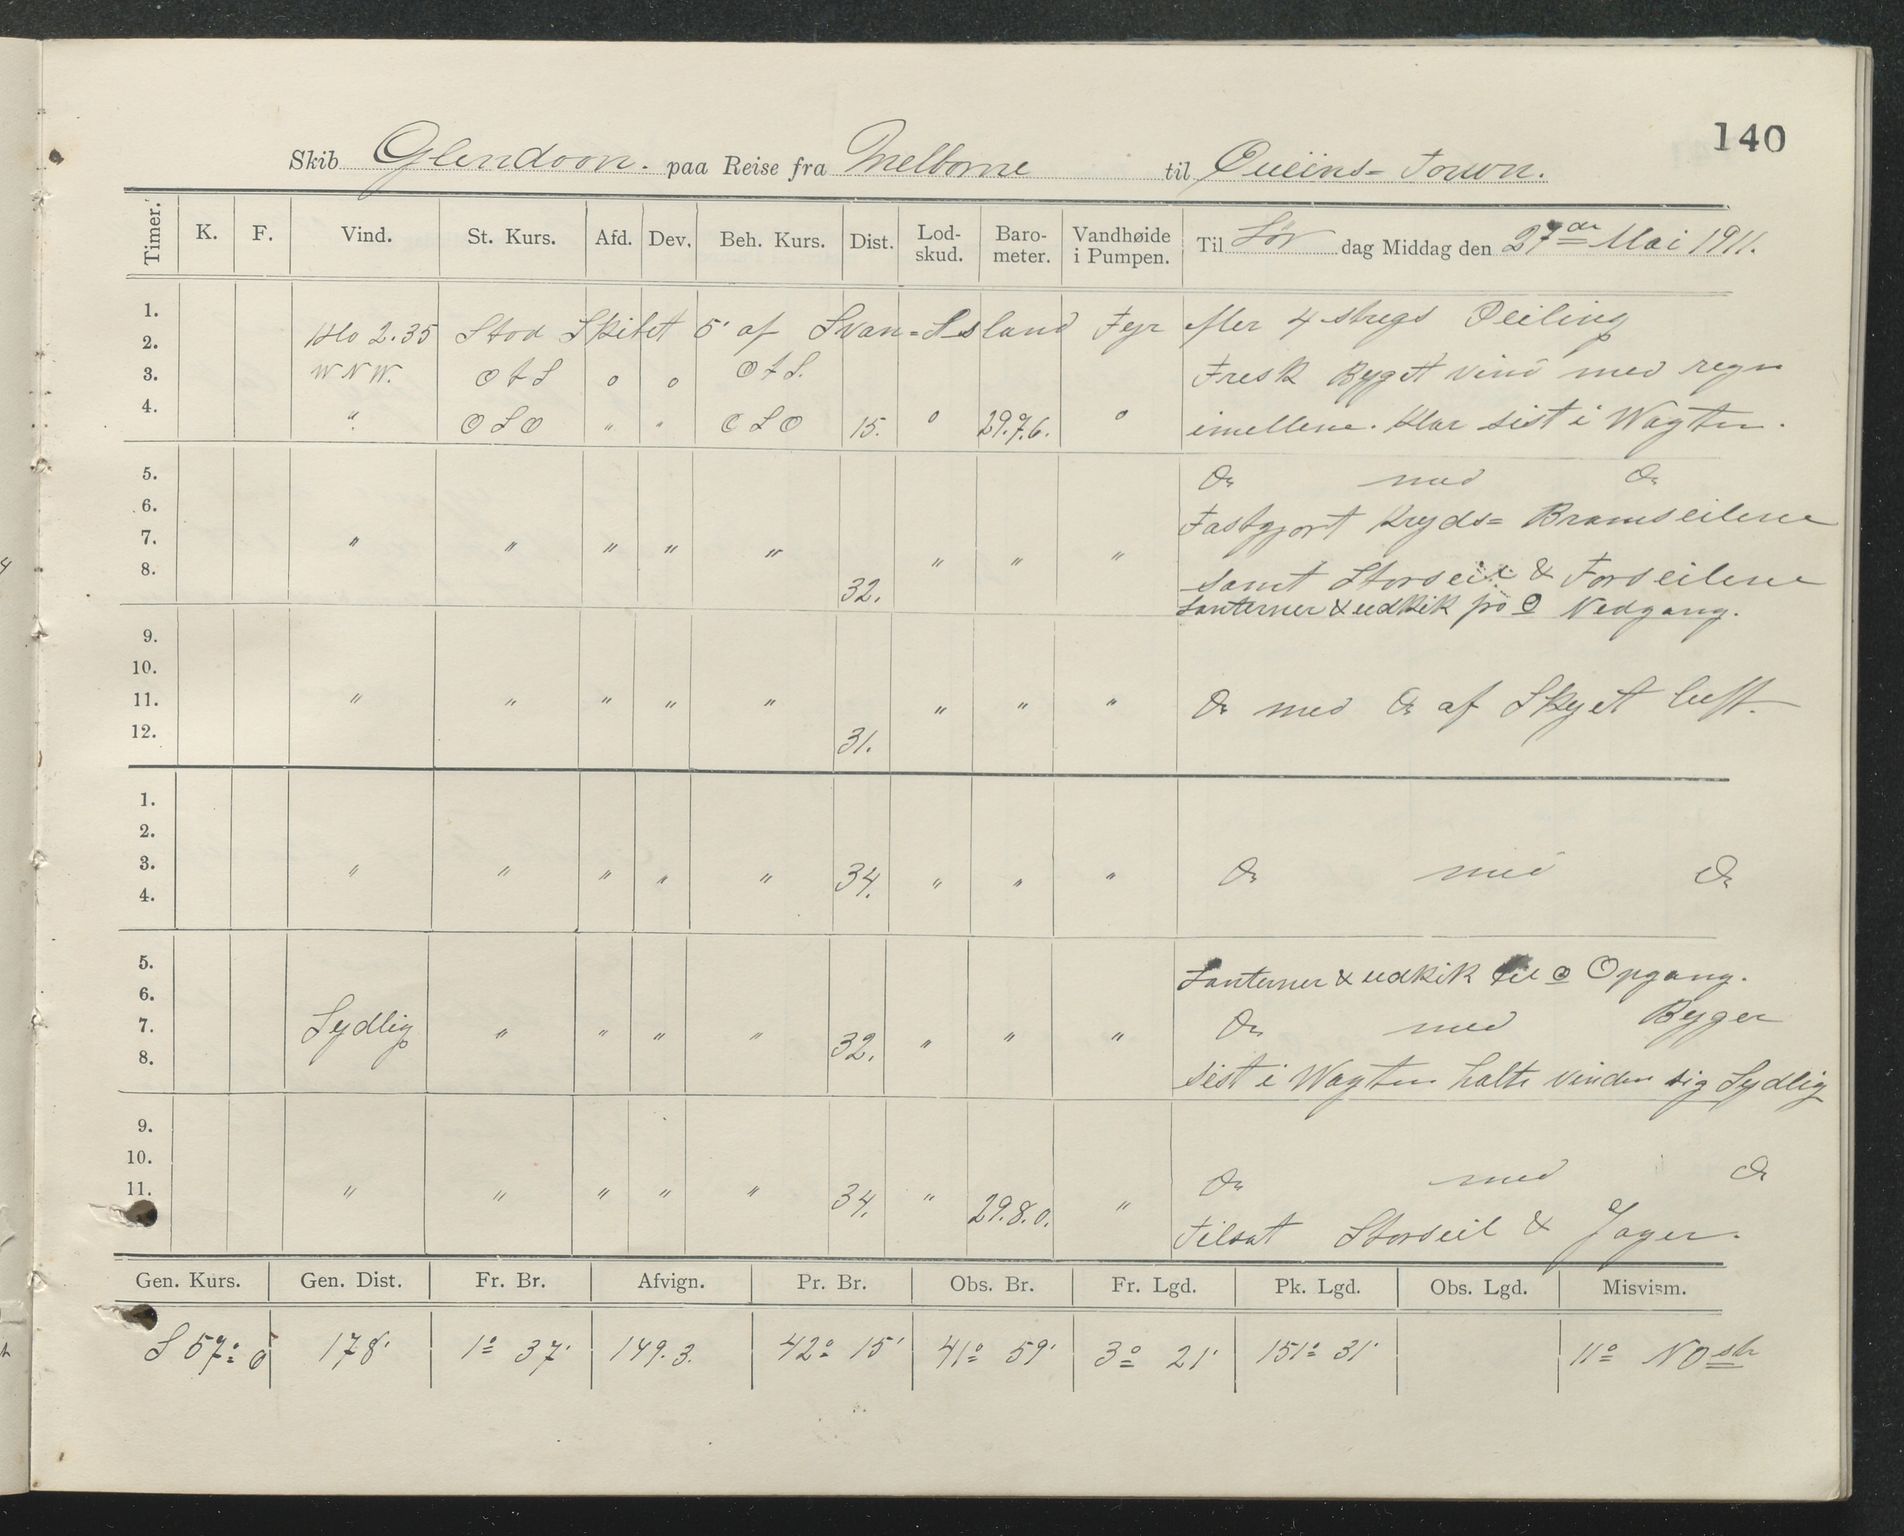 140
Skib Glendoon. paa Reise fra Melborne til Queins= Town.
Timer. K. F. Vind. St. Kurs. Afd. Dev. Beh. Kurs. Dist. Lod-skud. Baro-meter. Vandhøide i Pumpen. Til Lør dag Middag den 27de Mai 1911.
1.
2. Klo 2.35 Stod Skibet 5' af Svan=Island Fyr efter 4 stregs Peiling
3. WNW. OtS o o OtS. Fresk Byget vind med regn
4. " OSO " " OSO 15. o 29.7.6. o imellene. Klar sist i Wagten.
5. Do med Do
6. Fastgjort Kryds= Bramseilene
7. " " " " " " " "
8. 32. samt Storseil & Forseilene
Lanterner & udkik på ʘ Nedgang.
9.
10.
11. " " " " " " " " Do med Do af Skyet luft.
12. 31.
1.
2.
3. " " " " " 34. " " " Do med Do
4.
5. Lanterner & udkik til ʘ Opgang.
6.
7. Sydlig " " " " 32. " " " Do med Byger
8. sist i Wagten halte vinden sig Sydlig
9.
10.
11. " " " " " 34. " 29.8.0. " Do med Do
Tilsat Storseil & Jager.
Gen. Kurs. Gen. Dist. Fr. Br. Afvign. Pr. Br. Obs. Br. Fr. Lgd. Pk. Lgd. Obs. Lgd. Misvism.
S 57° O 178' 1° 37' 149.3. 42° 15' 41° 59' 3° 21' 151° 31' 11° NO